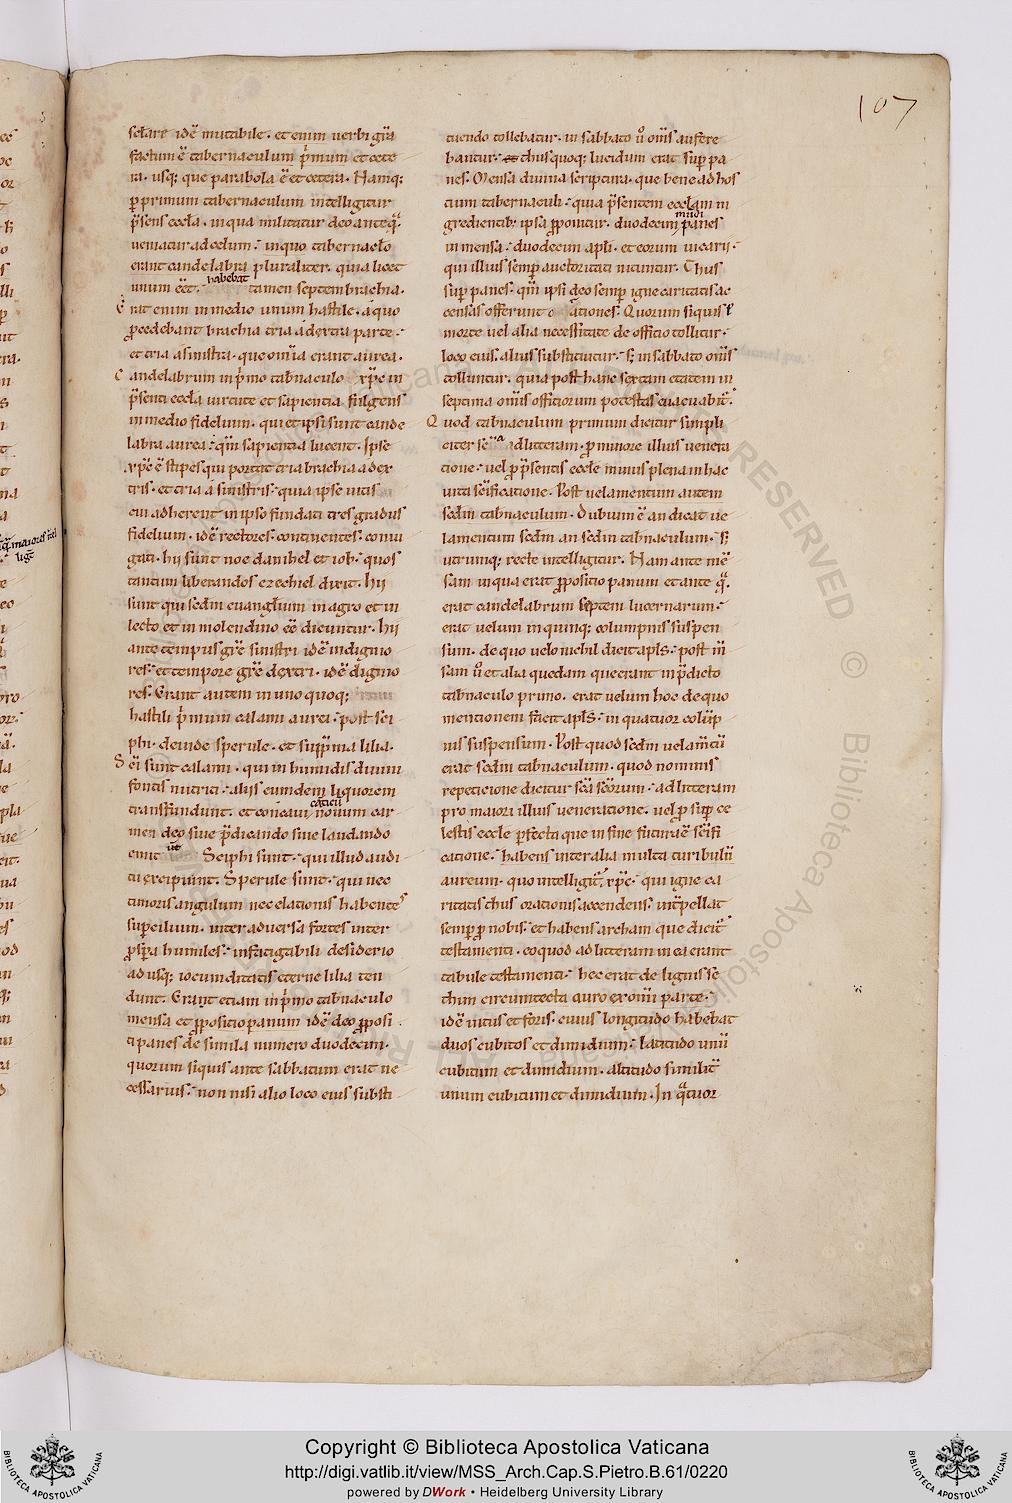 107
sclare idē mutabile. et enim uerbi gr̄a
factum ē tabernaculum p̄mum et cete
ra. usq; que parabola ē et cetera. Namq;
ꝑ primum tabernaculum intelligitur
p̄sens eccła. in qua militatur deo anteq̄
ueniatur ad celum. in quo tabernacło
erant candelabra pluraliter. quia licet
unum eēt. habebat tamen septem brachia.
Erat enim in medio unum hastile. a quo
ꝓcedebant brachia tria a dextra parte.
et tria a sinistra. que om̄ia erant aurea.
Candelabrum in p̄mo tab̄naculo xp̄c in
p̄senti eccła uirtute et sapientia fulgens
in medio fidelium. qui et ipsi sunt cande
labra aurea. qm̄ sapientia lucent. Ipse
xp̄c ē stipes qui portat tria brachia a dex
tris. et tria a sinistris. quia ipse uitis
cui adherent in ipso fundati tres gradus
fidelium. idē rectores. continentes. coniu
gati. hii sunt noe danihel et iob. quos
tantum liberandos ezechiel dixit. hii
sunt qui sedm euanglium in agro et in
lecto et in molendino eē dicuntur. hii
ante tempus gr̄e sinistri idē indignio
res. et tempore gr̄e dextri. idē dignio
res. Erant autem in uno quoq;
hastili p̄mum calami aurei. post sci
phi. deinde sperule. et supp̄ma lilia.
Sci sunt calami. qui in humidis diuini
fontis nutriti. aliis eumdem liquorem
transfundunt. et concaui canticū nouum car
men deo siue p̄dicando siue laudando
emit unt Sciphi sunt. qui illud audi
ti excipiunt. Sperule sunt. qui nec
timoris angulum nec elationis habentes
suꝑcilium. inter aduersa fortes inter
ꝓsꝑa humiles. infatigabili desiderio
ad usq; iocunditatis eterne lilia ten
dunt. Erant etiam in p̄mo tab̄naculo
mensa et ꝓpositio panum idē deo ꝓposi
ti panes de simila numero duodecim.
quorum siquis ante sabbatum erat ne
cessarius. non nisi alio loco eius substi
tuendo tollebatur. in sabbato ū om̄s aufere
bantur. thus quoq; lucidum erat suꝑ pa
nes. Mensa diuina scriptura. que bene ad hos
tium tabernaculi. quia p̄sentem ecclam in
gredientib; ipsa ꝓponitur. duodecim mūdi panes
in mensa. duodecim apli. et eorum uicarii.
qui illius semꝑ auctoritati nituntur. Thus
suꝑ panes. qm̄ ipsi deo semꝑ igne caritatis ac
censas offerunt orationes. Quorum siquis ł
morte uel alia necessitate de officio tollitur.
loco eius. alius substituitur. s; in sabbato om̄s
tolluntur. quia post hanc sextam etatem in
septima om̄is officiorum potestas euacuabit᷑.
Quod tab̄naculum primum dicitur simpli
citer ad litteram. ꝑ minore illius uenera
tione. uel ꝑ p̄sentis eccłe minus plena in hac
uita sc̄ificatione. Post uelamentum autem
sedm tabnaculum. Dubium ē an dicat ue
lamentum sedm an sedm tabnaculum. s;
utrunq; recte intelligitur. Nam ante mē
sam in qua erat ꝓpositio panum et ante q̄
erat candelabrum septem lucernarum.
erat uelum in quinq; columpnis suspen
sum. de quo uelo nichil dicit apłs. post m̄
sam ū et alia quedam que erant in p̄dicto
tabnaculo primo. erat uelum hoc de quo
mentionem facit apłs. in quatuor colūp
nis suspensum. Post quod sedm uelam̄tū
erat sedm tabnaculum. quod nominis
repeticione dicitur sc̄a sc̄orum. ad litteram
pro maiori illius ueneratione. uel ꝓ suꝑ ce
lestis eccłe ꝑfecta que in fine futura ē sc̄ifi
catione. habens inter alia multa turibulū
aureum. quo intelligit᷑ xp̄c. qui igne ca
ritatis thus orationis accendens. int̄pellat
semꝑ ꝓ nobis. et habens archam que dicit᷑
testamenti. eo quod ad litteram in ea erant
tabule testamenti. hec erat de lignis se
thim circumtecta auro ex om̄i parte.
idē intus et foris. cuius longitudo habebat
duos cubitos et dimidium. latitudo unū
cubitum et dimidium. altitudo similit᷑
unum cubitum et dimidium. In q̄tuor
Copyright © Biblioteca Apostolica Vaticana
http://digi.vatlib.it/view/MSS_Arch.Cap.S.Pietro.B.61/0220
powered by DWork • Heidelberg University Library
BIBLIOTECA APOSTOLICA VATICANA
BIBLIOTECA APOSTOLICA VATICANA